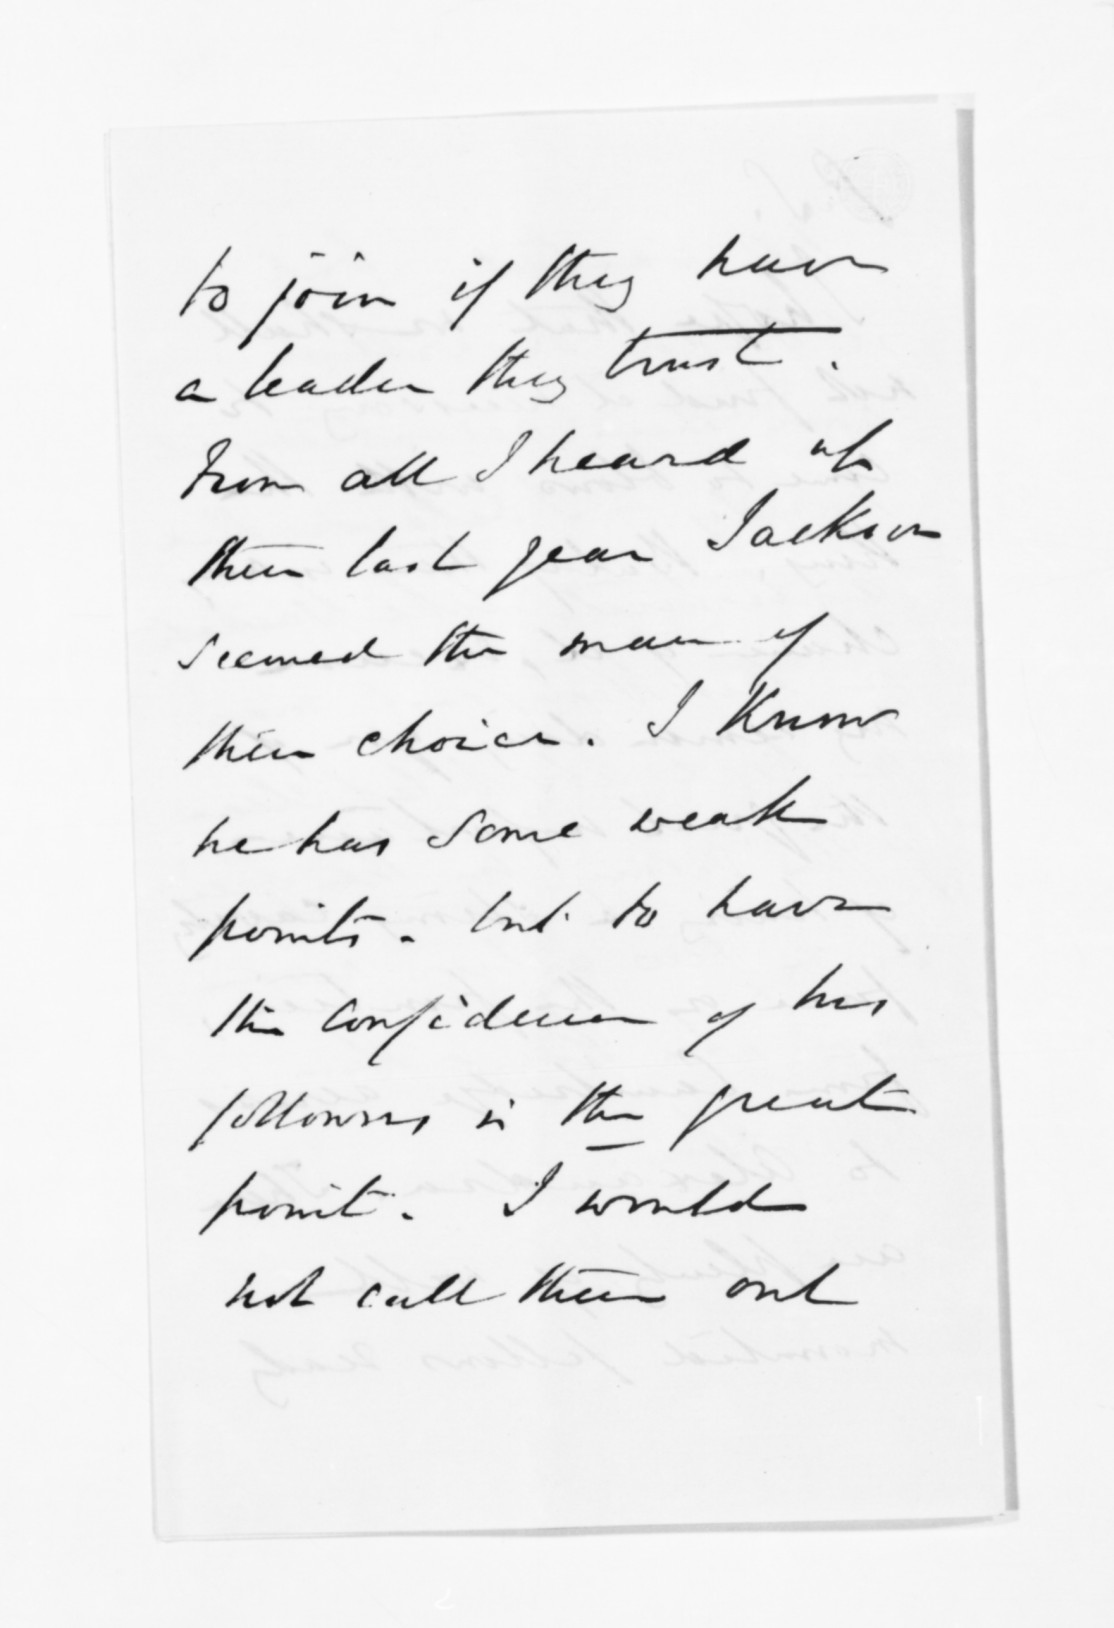 to join if they have
a leader they trust.
From all I heard up
there last year Jackson
seemed the man of
their choice. I know
he has some weak
points - but to have
the confidence of his
followers is the great
point. I would
not call them out